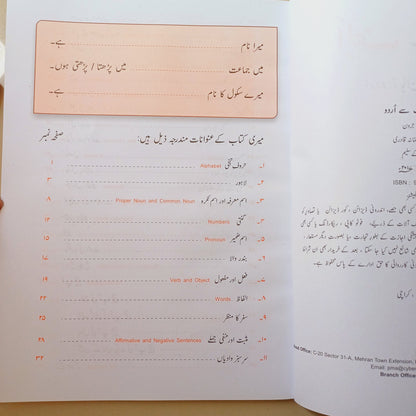 میرا نام ہے۔
میں جماعت میں پڑھتا / پڑھتی ہوں۔
میرے سکول کا نام ہے۔
میری کتاب کے عنوانات مندرجہ ذیل ہیں: صفحہ نمبر
۱۔ حروف تہجی Alphabet ۱
۲۔ لاہور ۳
۳۔ اسم معرفہ اور اسم نکرہ Proper Noun and Common Noun ۸
۴۔ گنتی Numbers ۱۲
۵۔ اسم ضمیر Pronoun ۱۵
۶۔ بندر والا ۱۷
۷۔ فعل اور مفعول Verb and Object ۱۹
۸۔ الفاظ Words ۲۲
۹۔ سفر کا منظر ۲۵
۱۰۔ مثبت اور منفی جملے Affirmative and Negative Sentences ۲۹
۱۱۔ سرسبز وادیاں ۳۲
سے اُردو
قادری
ISBN :
کراچی
Office: C-20 Sector 31-A, Mehran Town Extension,
Email: pma@cyber
Branch Office